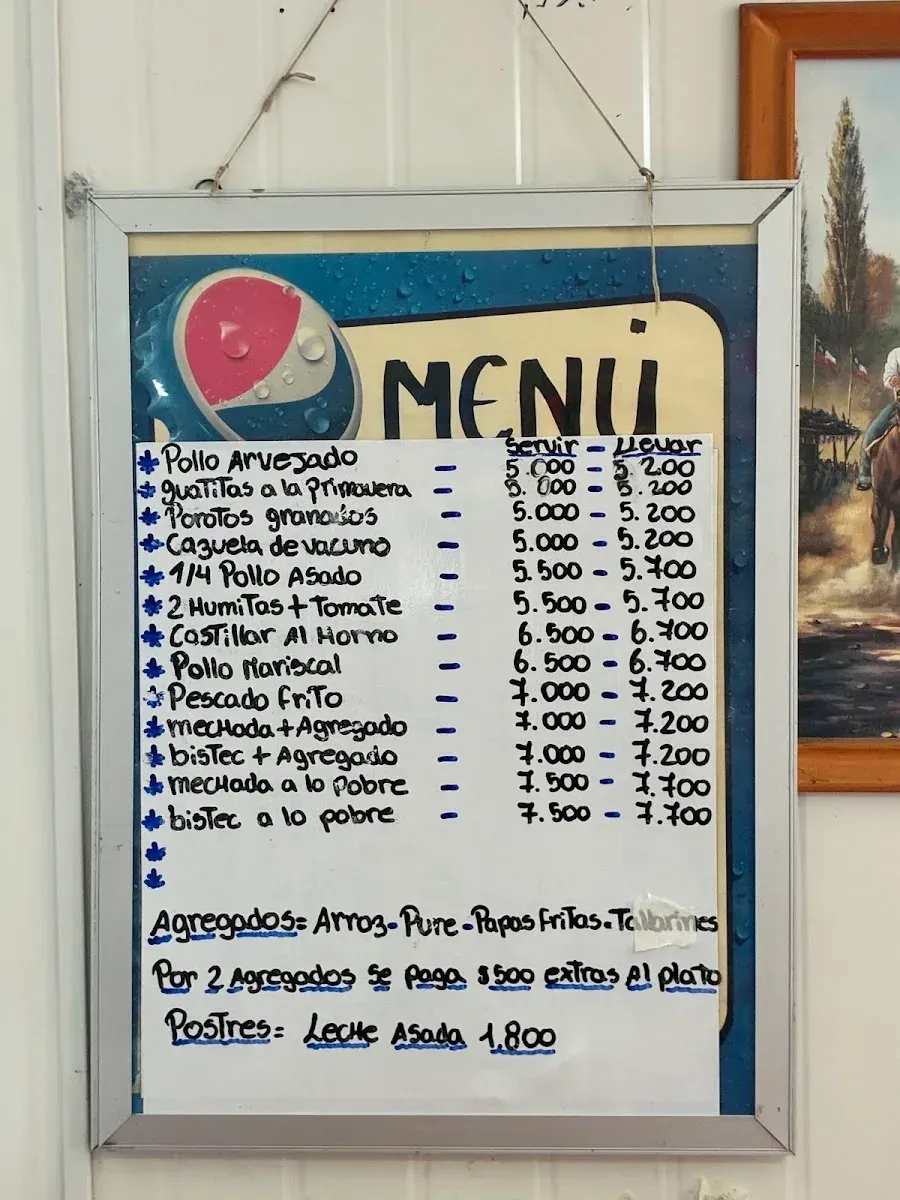 MENÚ
Servir - LLevar
* Pollo Arvejado - 5.000 - 5.200
* guatitas a la primavera - 5.000 - 5.200
* Porotos granados - 5.000 - 5.200
* Cazuela de vacuno - 5.000 - 5.200
* 1/4 Pollo Asado - 5.500 - 5.700
* 2 Humitas + Tomate - 5.500 - 5.700
* Costillar Al Horno - 6.500 - 6.700
* Pollo Mariscal - 6.500 - 6.700
* Pescado frito - 7.000 - 7.200
* mechada + Agregado - 7.000 - 7.200
* bistec + Agregado - 7.000 - 7.200
* mechada a lo Pobre - 7.500 - 7.700
* bistec a lo pobre - 7.500 - 7.700
*
*
Agregados = Arroz - Pure - Papas fritas - Tallarines
Por 2 Agregados se paga $500 extras Al plato
Postres = Leche Asada 1.800